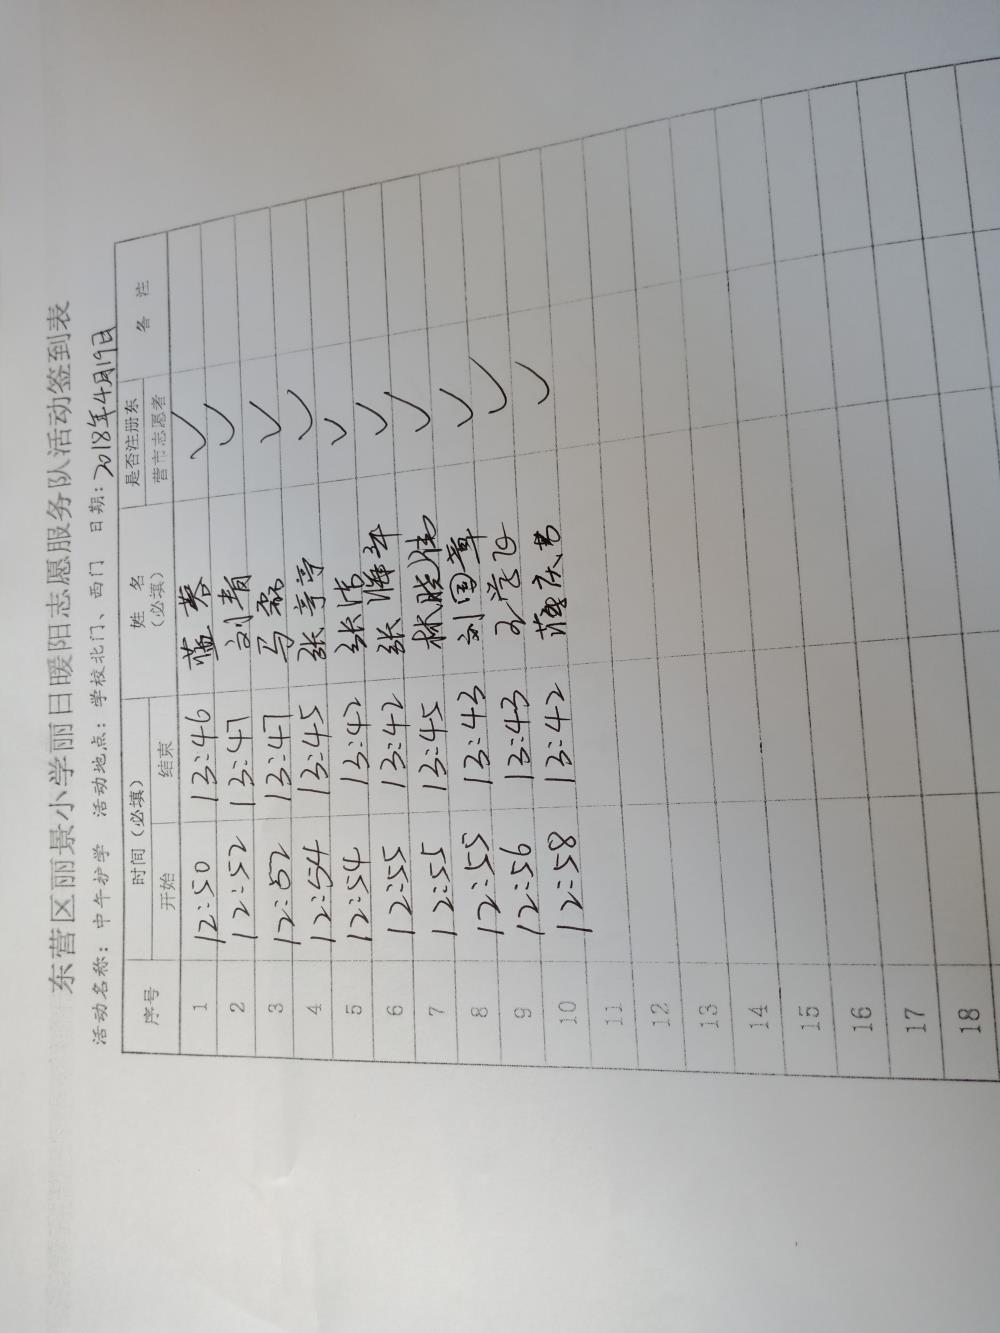 东营区丽景小学丽日暖阳志愿服务队活动签到表
活动名称：中午护学 活动地点：学校北门、西门 日期：2018年4月19日
序号 时间（必填） 姓 名（必填） 是否注册东营市志愿者 备 注
开始 结束
1 12:50 13:46 蓝蓉 ✓
2 12:52 13:47 刘青 ✓
3 12:52 13:47 马磊 ✓
4 12:54 13:45 张亭亭 ✓
5 12:54 13:42 张洁 ✓
6 12:55 13:42 张 ✓
7 12:55 13:45 林晓伟 ✓
8 12:55 13:43 刘国章 ✓
9 12:56 13:43 ✓
10 12:58 13:42 ✓
11
12
13
14
15
16
17
18